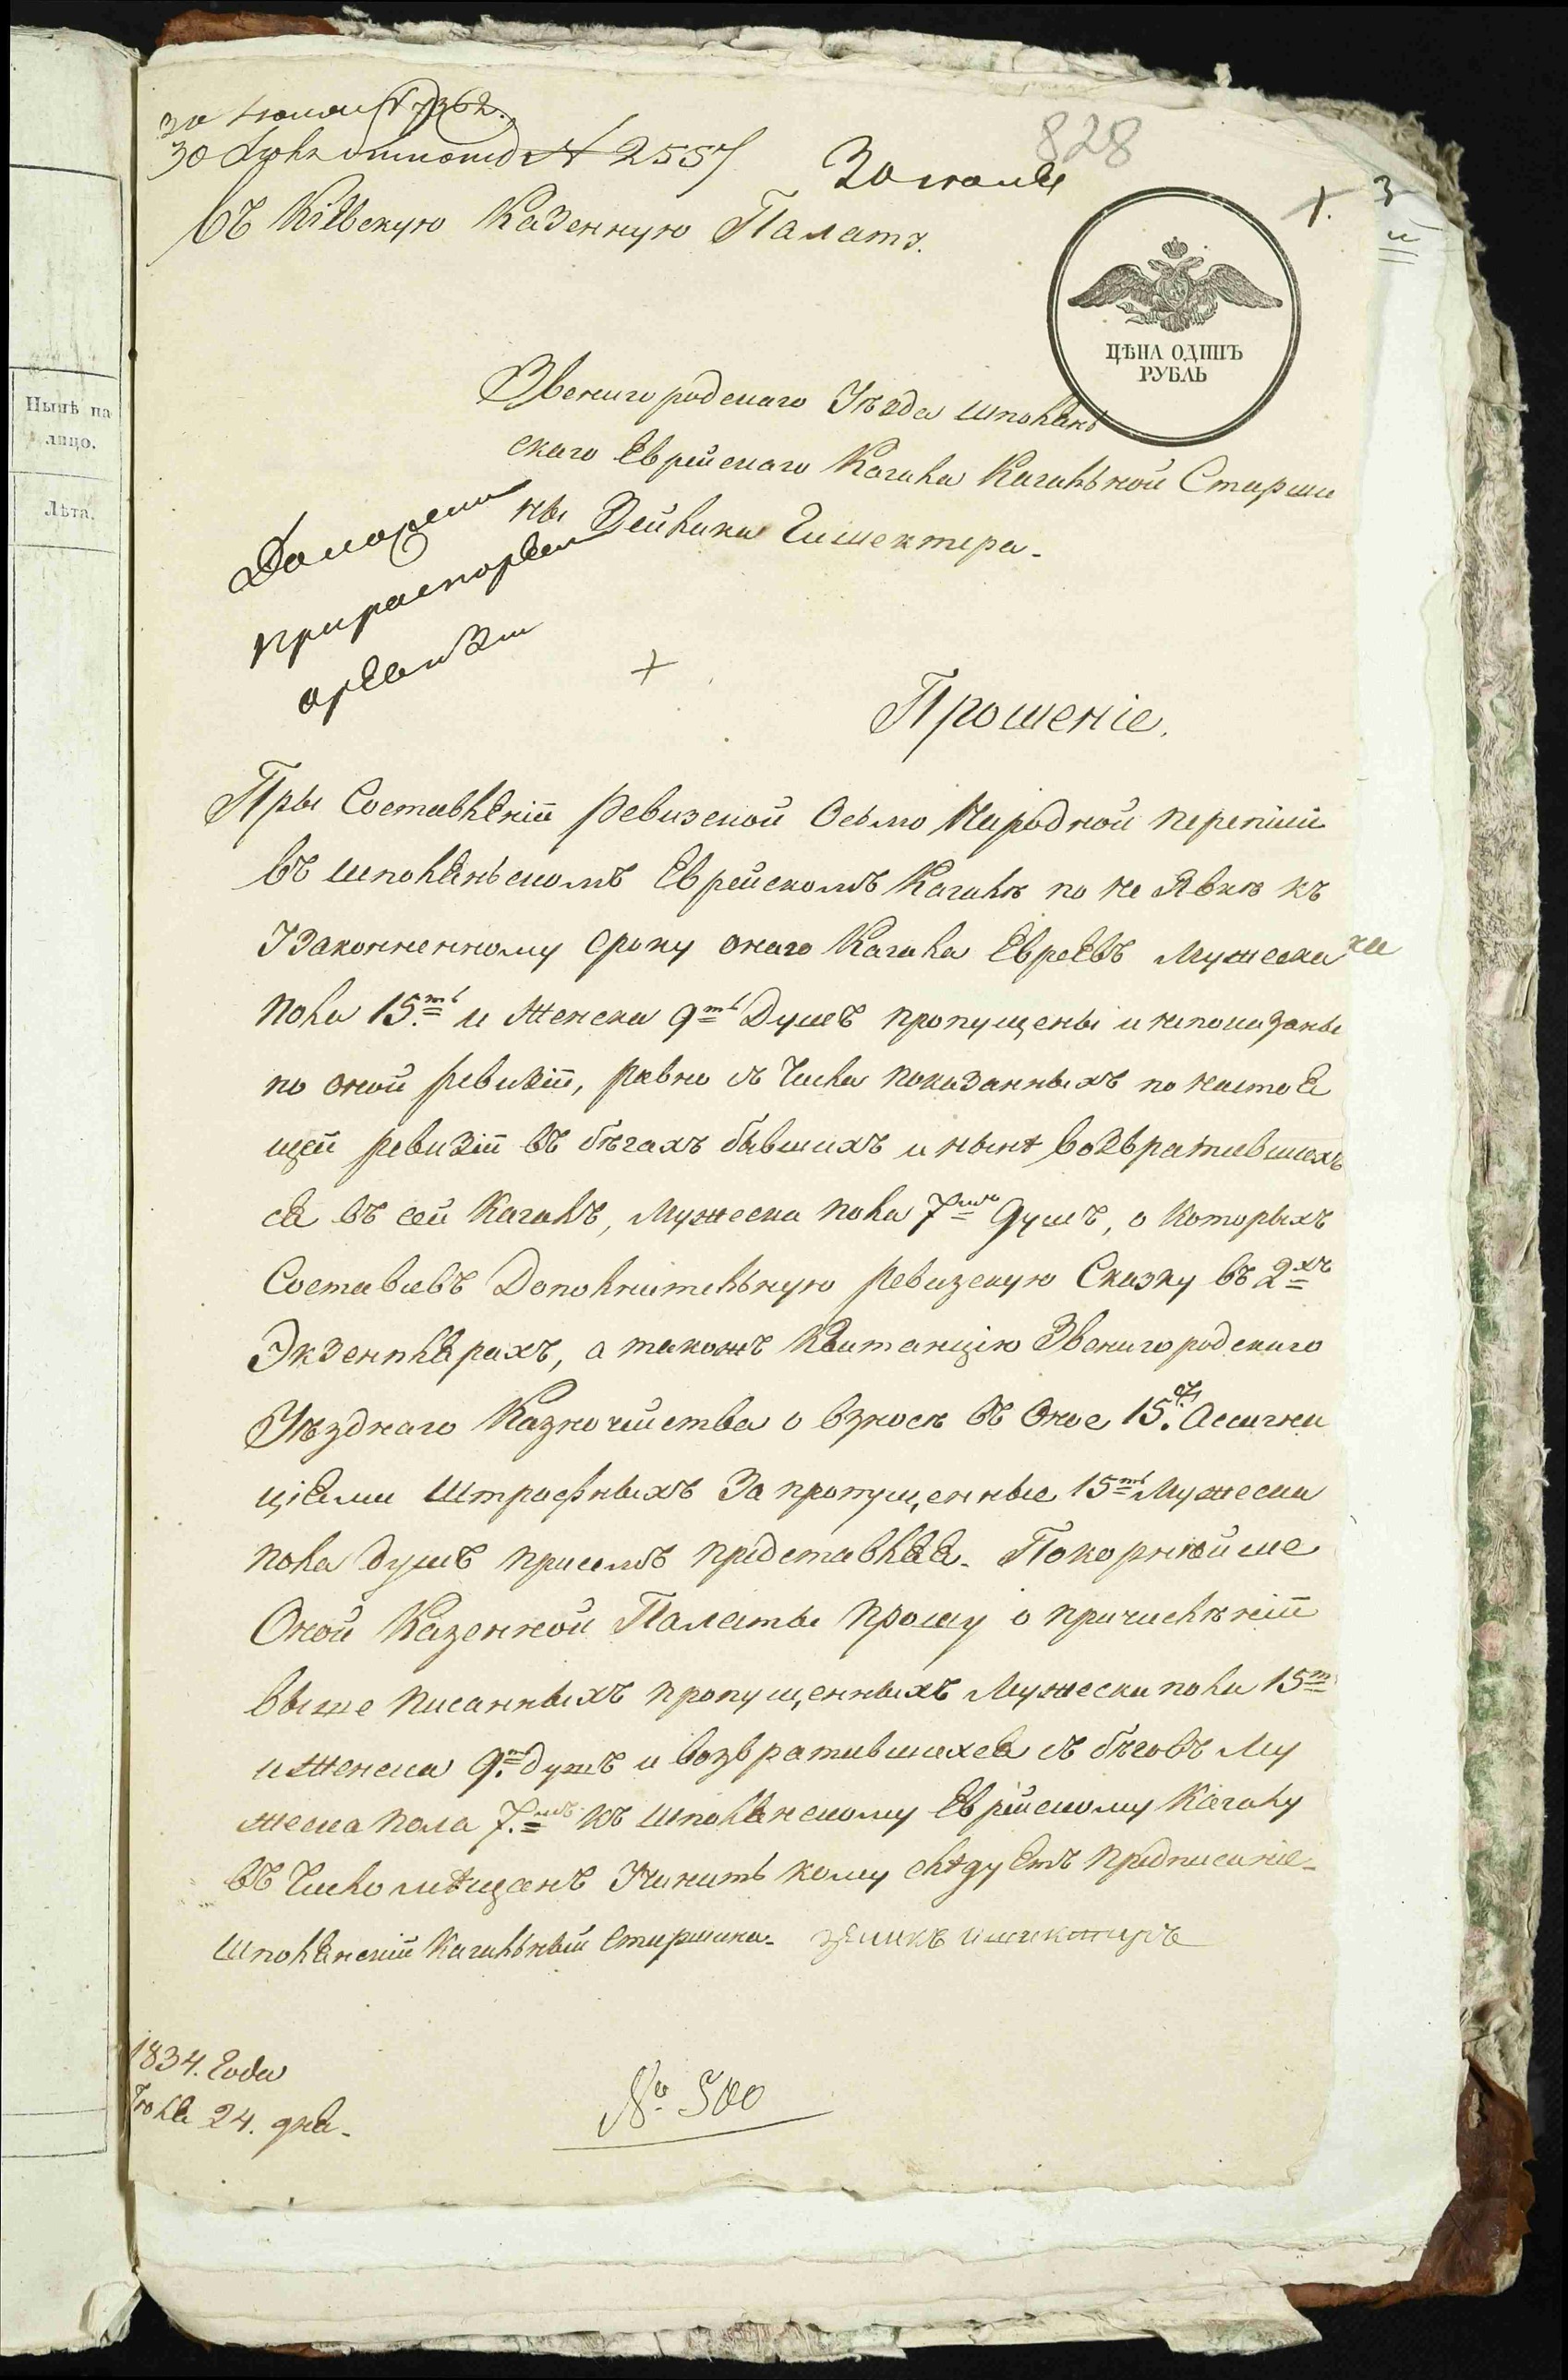 Нынѣ на
лицо.
Лѣта.
828
30 № 7362.
30 № 2557
Въ Кіевскую Казенную Палату.
ЦѢНА ОДИНЪ
РУБЛЬ
Звенигородскаго Уѣзда Шполян
скаго Еврейскаго Кагала Кагальной Старши
ны Зейлика
Прошеніе.
Пры Составленіи Ревизской Осьмо Народной переписи
въ Шполянскомъ Еврейскомъ Кагалѣ по не Явкѣ къ
Узаконненному сроку онаго Кагала Евреевъ Мужеска
пола 15.ть и Женска 9ть Душъ пропущены и непоказаны
по оной ревизіи, равно съ Числа показанныхъ по настоя
щей ревизіи въ бѣгахъ бывшихъ и нынѣ возвратившехъ
ся въ сей Кагалъ, Мужеска пола 7мъ Душъ, о Которыхъ
Составивъ Дополнительную Ревизскую Сказку въ 2хъ
Экземплярахъ, а такожъ Квитанцію Звенигородскаго
Уѣзднаго Казначейства о взносѣ въ Оное 15. Асигна
ціями Штрафныхъ За пропущенные 15ть Мужеска
пола душъ присемъ представляя. Покорнѣйше
Оной Казенной Палаты прошу о причисленіи
выше писанныхъ пропущенныхъ Мужеска пола 15ть
и Женска 9.ть душъ и возвратившехся съ бѣговъ Му
жеска пола 7.мъ къ Шполянскому Еврейскому Кагалу
въ Число мѣщанъ Учинить кому слѣдуетъ предписаніе.
Шполянскій Кагальный Старшина.
1834. Года
Іюля 24. дня.
№ 500